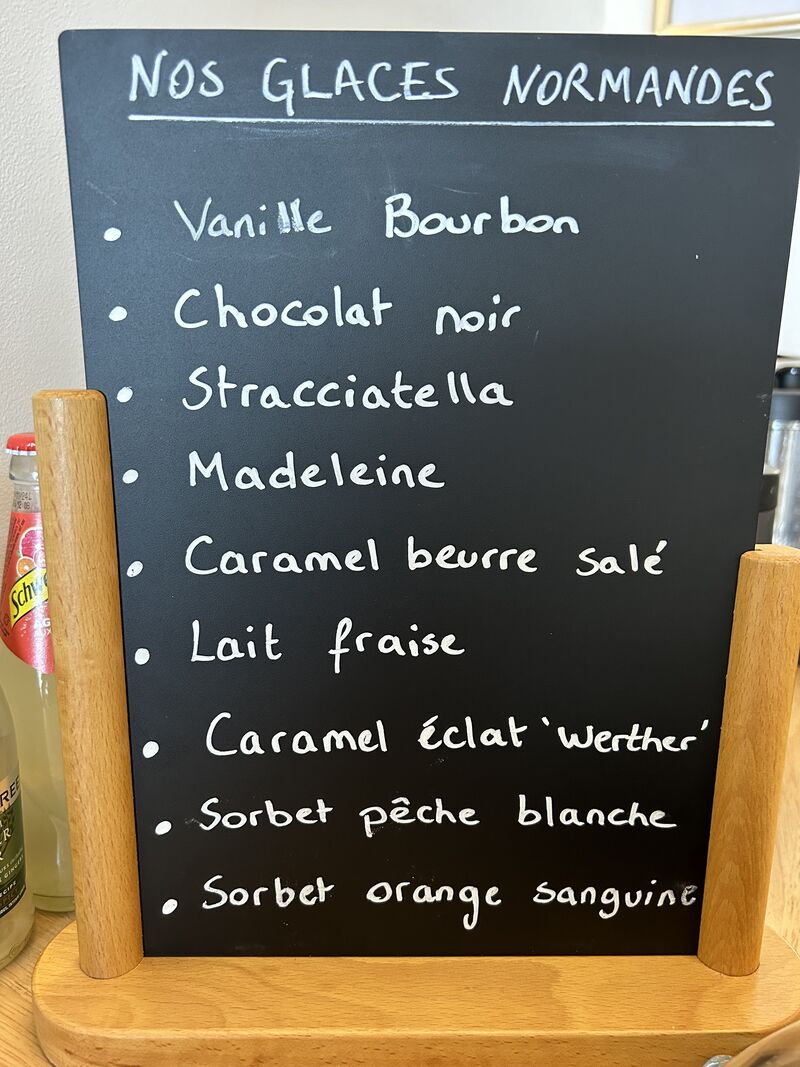 NOS GLACES NORMANDES
• Vanille Bourbon
• Chocolat noir
• Stracciatella
• Madeleine
• Caramel beurre salé
• Lait fraise
• Caramel éclat 'Werther'
• Sorbet pêche blanche
• Sorbet orange sanguine
Schw